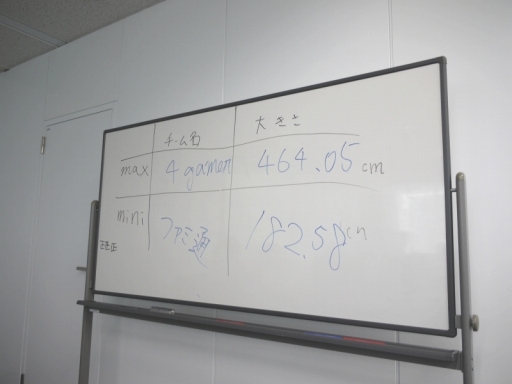 チーム名 大きさ
max 4 gamer 464.05 cm
mini ファミ通 182.58cm